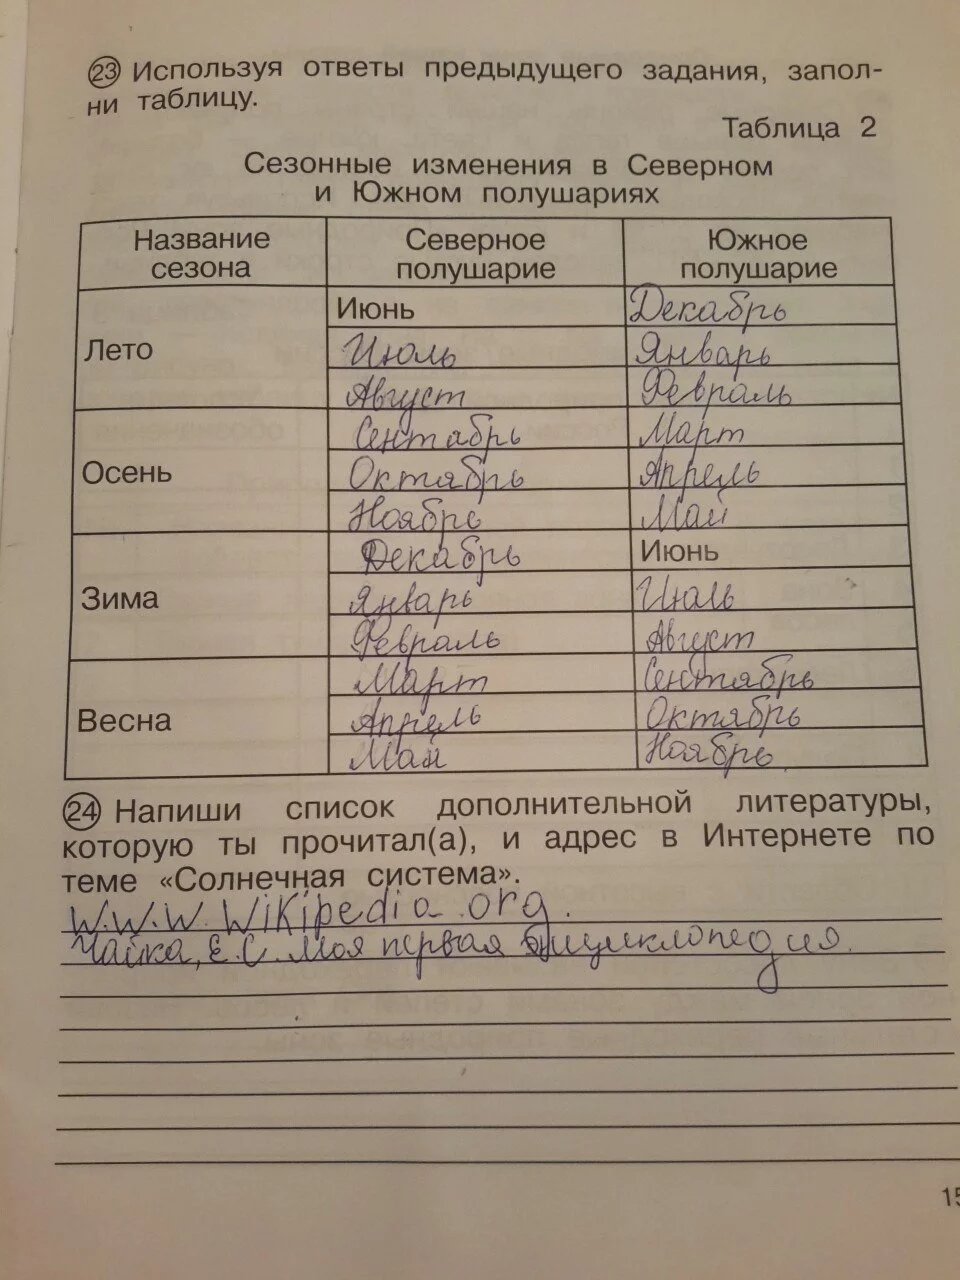 23 Используя ответы предыдущего задания, запол-
ни таблицу.
Таблица 2
Сезонные изменения в Северном
и Южном полушариях
Название сезона Северное полушарие Южное полушарие
Лето Июнь Декабрь
Июль Январь
Август Февраль
Осень Сентябрь Март
Октябрь Апрель
Ноябрь Май
Зима Декабрь Июнь
Январь Июль
Февраль Август
Весна Март Сентябрь
Апрель Октябрь
Май Ноябрь
24 Напиши список дополнительной литературы,
которую ты прочитал(а), и адрес в Интернете по
теме «Солнечная система».
W.W.W. Wikipedia.org.
Чайка, Е.С. Моя первая
15